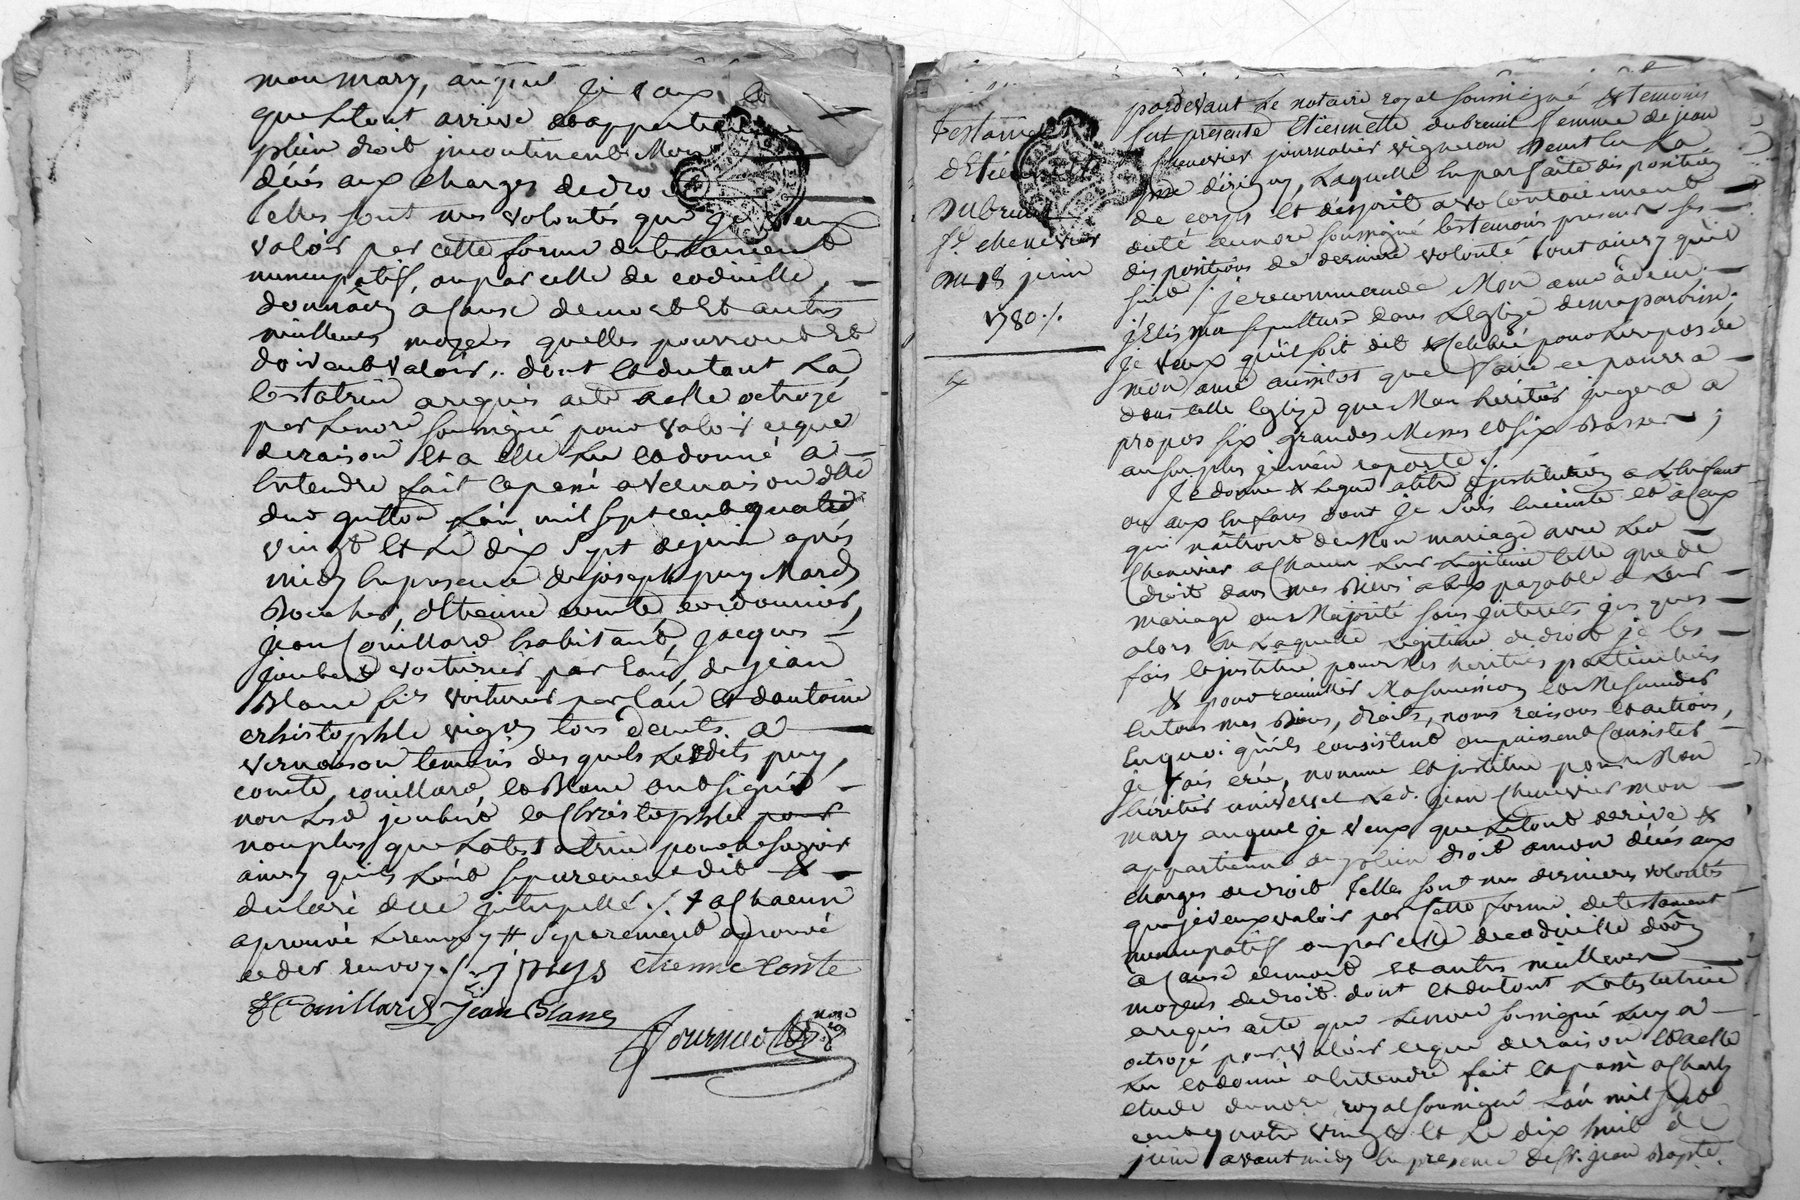 mon mary, auquel je veux
que le tout arrive et appartienne
plein droit incontinent Mon
décés aux charges de droit
telles sont mes volontés que je veux
valoir par cette forme de testament
nuncupatif, ou par celle de codicille,
donnaõn a cause de mort et autres
meilleurs moyens quelles pourront et
doivent valoir. dont et du tout La
testatrice a requis acte a elle octroyé
par le nore soussigné pour valoir ce que
de raison et a elle Lu et donné a
Entendre fait et passé a Vernaison
L'an mil sept cent quatre
vingt et Le dix sept de juin après
midy En presence de joseph puy Marchd
Boucher, d'Etienne comte, cordonnier,
jean Couillard habitant, jacques
joubert voiturier par Eau, de jean
Blanc fils voiturier par Eau et d'antoine
christophle vigñ tous decents a
vernaison temoins des quels Lesdits puy,
comte, couillard, et Blanc ont signé
non Led joubert et Christophle pour
non plus que La testatrice pour ne savoir
ainsy qu'ils L'ont separement dit &
declaré de ce interpellé ./. + a Chacun
aprouvé Le renvoy # separement aprouvé
ce der renvoy ./. j puys etienne Conte
Couillard Jean Blanc
Fournier nore
Testament
d'Etiennette
Dubreuil
fe. chenevier
Du 18 juin
1780 ./.
pardevant Le notaire royal soussigné & temoins
fut presente Etiennette dubreuil femme de jean
Chenevier journalier vigneron demt En La
psse d'irigny, Laquelle En parfaite disposition
de corps et d'esprit a volontairement
dicté au nore soussigné les temoins presens ses
dispositions de derniere volonté tout ainsy qu'il
suit ./. je recommande Mon ame à dieu.
j'Elis ma sepulture dans L'Eglise de ma paroisse.
je veux qu'il soit dit & Celebré pour Le repos de
mon ame aussitot que faire ce pourra
dans telle Eglise que Mon héritier jugera a
propos six grandes Messes et six Basses,
au surplus je m'en raporte ./.
Je donne & Legue a titre d'institution a L'enfant
ou aux Enfans dont je suis Enceinte et à Ceux
qui naitront de Mon mariage avec Led
Chenevier a Chacun Leur Legitime telle que de
droit dans mes Biens a eux payable a Leur
mariage ou Majorité sans interets jus ques
alors En Laquelle Legitime de droit je les
fais et institue pour Mes heritiers particuliers
& pour recueillir Ma succession
En tous mes Biens, droits, noms raisons et actions,
En quoi qu'ils consistent ou puissent Consister
je fais crée, nomme et institue pour Mon
héritier universel Led. jean Chenevier mon
mary auquel je veux que Le tout arrive &
appartienne de plein droit a mon décés aux
charges de droit telles sont mes dernieres volontés
que je veux valoir par Cette forme de testament
nuncupatif ou par celle de codicille doõn
à Cause de mort et autres meilleurs
moyens de droit. dont et du tout La testatrice
a requis acte que Le nore soussigné Luy a
octroyé pour valoir ce que de raison et a elle
Lu et donné a Entendre fait et passé a Charly
etude du nore royal soussigné L'an mil sept
cent quatre vingt et Le dix huit de
juin avant midy En presence de sr. jean Bapte